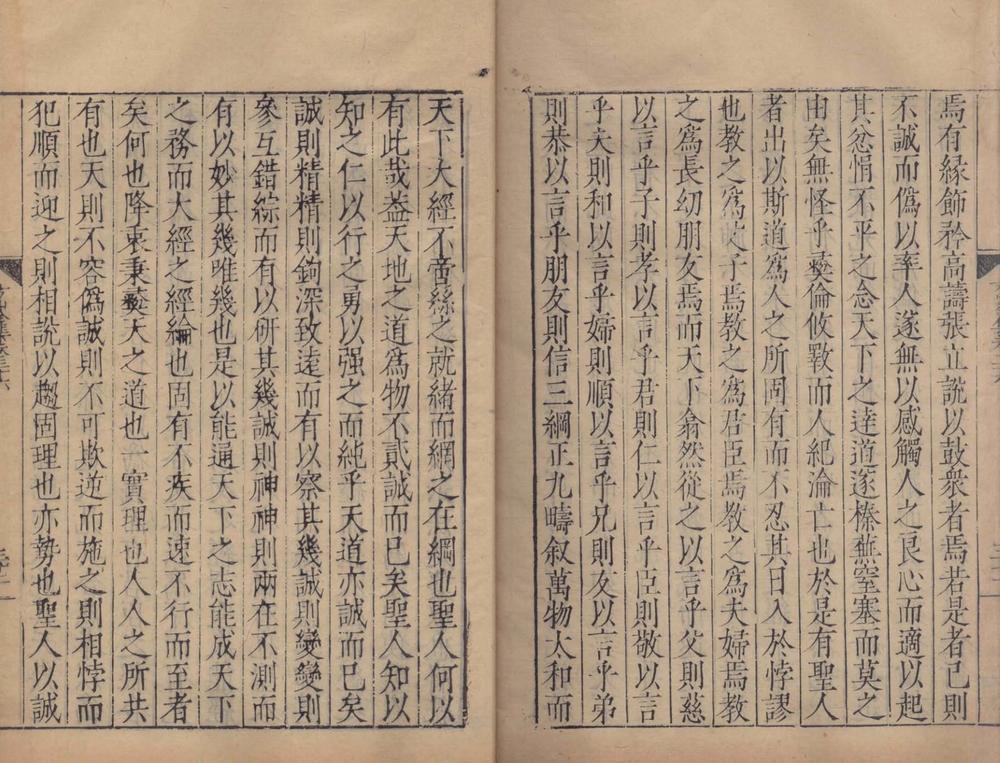 焉有緣飾矜高譸張立說以鼓衆者焉若是者己則
不誠而僞以率人遂無以感觸人之良心而適以起
其忿悁不平之念天下之逹道遂榛蕪窒塞而莫之
由矣無怪乎彝倫攸斁而人紀淪亡也於是有聖人
者出以斯道爲人之所固有而不忍其日入於悖謬
也教之爲父子焉教之爲君臣焉教之爲夫婦焉教
之爲長幼朋友焉而天下翕然從之以言乎父則慈
以言乎子則孝以言乎君則仁以言乎臣則敬以言
乎夫則和以言乎婦則順以言乎兄則友以言乎弟
則恭以言乎朋友則信三綱正九疇叙萬物太和而
天下大經不啻絲之就緒而網之在綱也聖人何以
有此哉葢天地之道爲物不貳誠而已矣聖人知以
知之仁以行之勇以强之而純乎天道亦誠而已矣
誠則精精則鉤深致逺而有以察其幾誠則變變則
參互錯綜而有以研其幾誠則神神則兩在不測而
有以妙其幾唯幾也是以能通天下之志能成天下
之務而大經之經綸也固有不疾而速不行而至者
矣何也降衷秉彝天之道也一實理也人人之所共
有也天則不容僞誠則不可欺逆而施之則相悖而
犯順而迎之則相說以趨固理也亦勢也聖人以誠